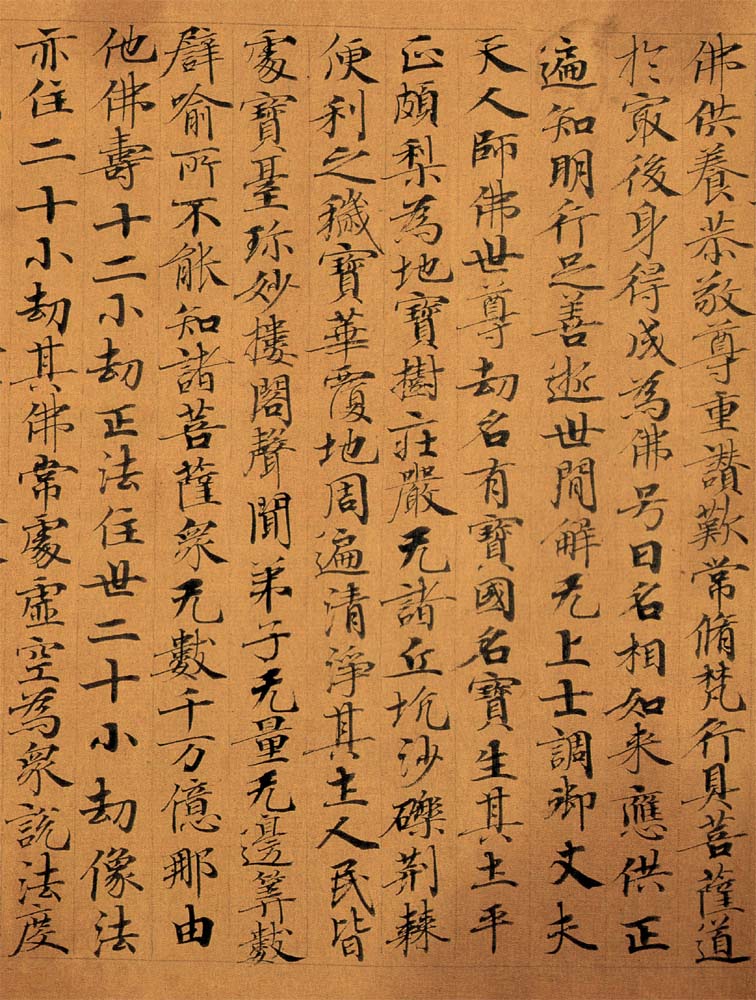 佛供養恭敬尊重讚歎常脩梵行具菩薩道
於寂後身得成為佛号曰名相如来應供正
遍知明行足善逝世間解无上士調御丈夫
天人師佛世尊劫名有寶國名寶生其土平
正頗梨為地寶樹莊嚴无諸丘坑沙礫荆棘
便利之穢寶華覆地周遍清淨其土人民皆
處寶臺珎妙樓閣聲聞弟子无量无邊筭數
辟喻所不能知諸菩薩衆无數千万億那由
他佛壽十二小劫正法住世二十小劫像法
亦住二十小劫其佛常處虛空為衆說法度